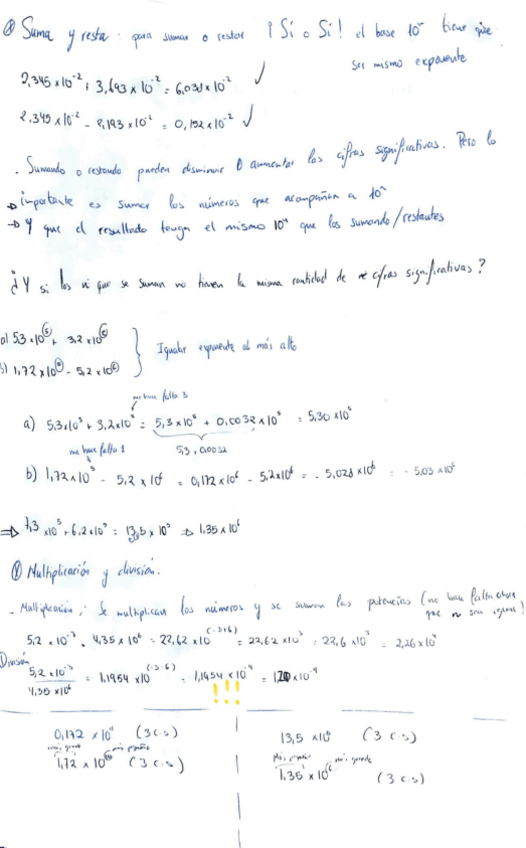 ⊗ Suma y resta: para sumar o restar ¡Sí o Sí! el base 10ⁿ tiene que
ser mismo exponente
2,345 x10⁻² + 3,693 x 10⁻² = 6,038 x10⁻² ✓
2,345 x10⁻² - 2,193 x10⁻² = 0,152 x10⁻² ✓
. Sumando o restando pueden disminuir o aumentar las cifras significativas. Pero lo
importante es sumar los números que acompañan a 10ⁿ
→ Y que el resultado tenga el mismo 10ⁿ que los sumando/restantes
¿Y si los nº que se suman no tienen la misma cantidad de cifras significativas?
a) 5,3 x10 + 3,2 x10
b) 1,72 x10 - 5,2 x10
Igualar exponente al más alto
me hace falta 3
a) 5,3x10 + 3,2x10 = 5,3 x10 + 0,0032 x10 = 5,30 x10
me hace falta 1
5,3 + 0,0032
b) 1,72 x10⁵ - 5,2 x 10⁶ = 0,172 x10⁶ - 5,2x10⁶ = - 5,028 x10⁶ = - 5,03 x10⁶
⇒ 7,3 x10⁵ + 6,2 x10⁵ = 13,5 x 10⁵ ⇒ 1,35 x 10⁶
⊗ Multiplicación y división.
- Multiplicación: Se multiplican los números y se suman las potencias (no hace falta ahora
que n sea igual)
5,2 x10⁻³ · 4,35 x 10⁶ = 22,62 x10⁽⁻³⁺⁶⁾ = 22,62 x10³ = 22,6 x10³ = 2,26 x10⁴
División
5,2 x10⁻³
4,35 x10⁶
= 1,1954 x10⁽⁻³⁻⁶⁾ = 1,1954 x 10⁻⁹ = 1,20 x10⁻⁹
!!!
0,172 x 10 (3 c.s)
más grande más pequeño
1,72 x 10 (3 c.s)
13,5 x10 (3 c.s)
más pequeño más grande
1,35 x 10⁶ (3 c.s)